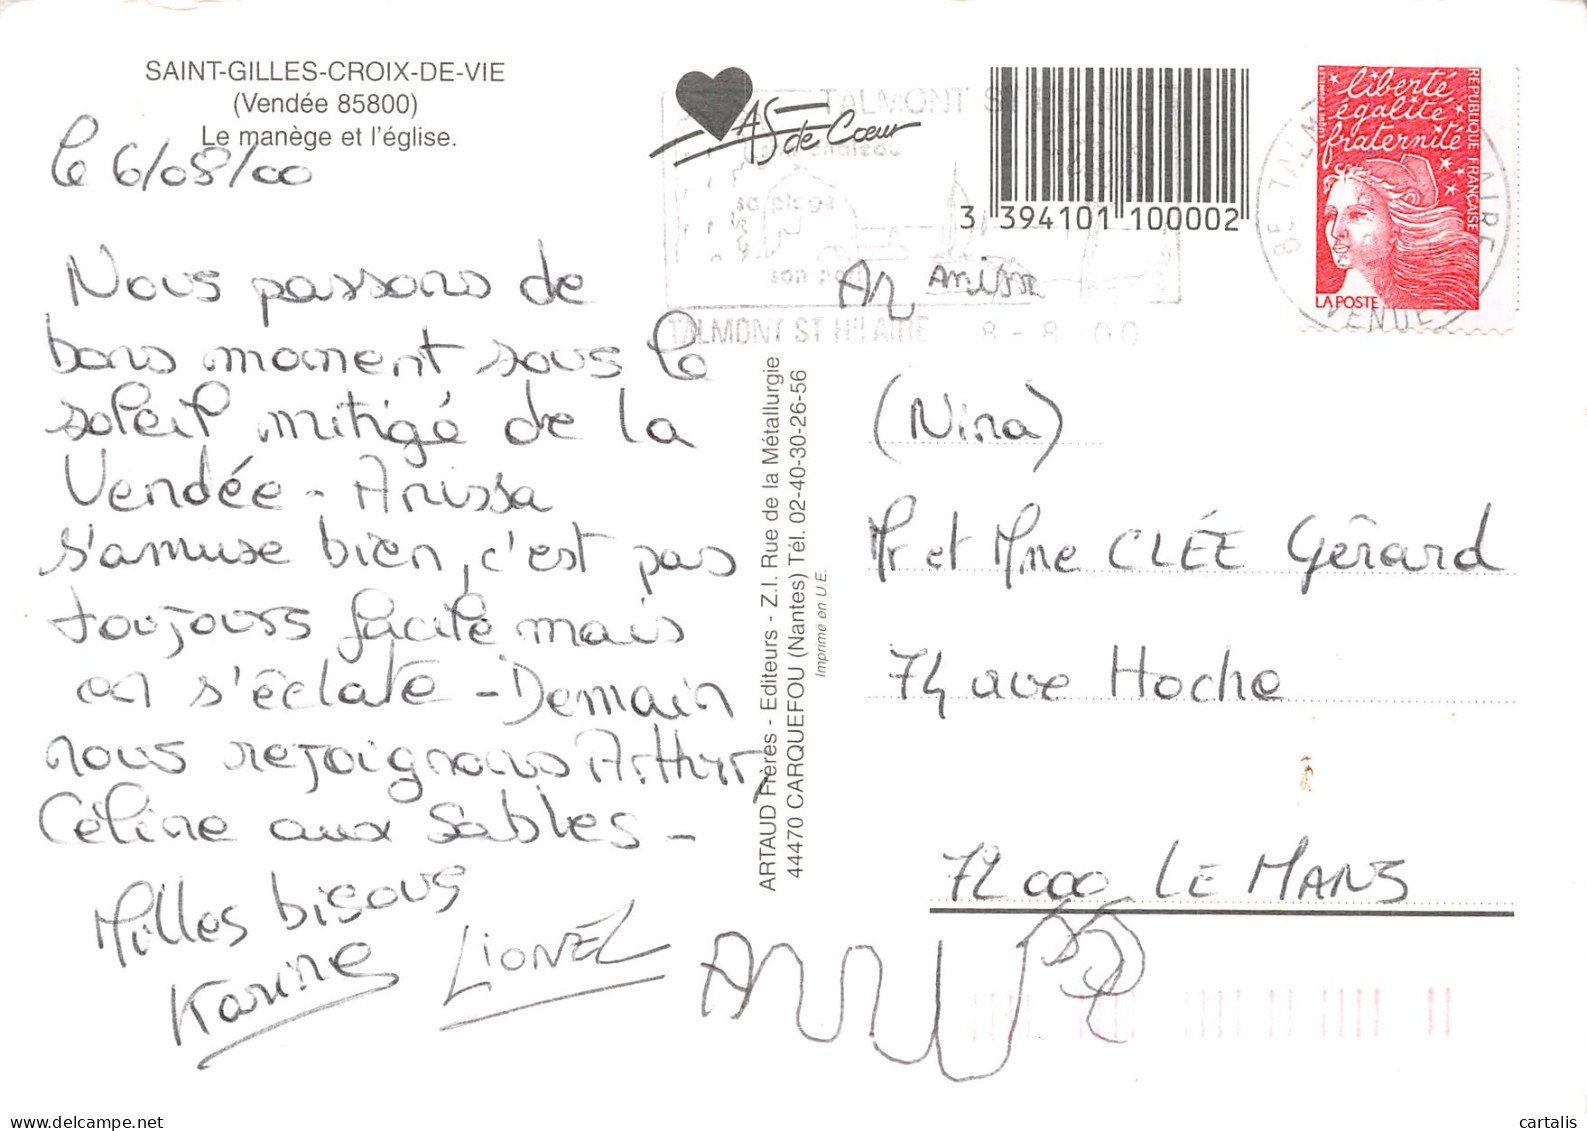 SAINT-GILLES-CROIX-DE-VIE
(Vendée 85800)
Le manège et l'église.
le 6/08/00
Nous passons de
bons moment sous le
soleil mitigé de la
Vendée - Anissa
s'amuse bien, c'est pas
toujours facile mais
on s'éclate - Demain
nous rejoignons Arthur,
Céline aux Sables -
Milles bisous
Karine
LIONEL
AS de Cœur
TALMONT ST
son château
sa plage
son port
TALMONT ST HILAIRE 8 - 8 00
3 394101 100002
An Anissa
liberté
égalité
fraternité
RÉPUBLIQUE FRANÇAISE
LA POSTE
85 TALM
AIRE
VENDEE
ARTAUD Frères - Editeurs - Z.I. Rue de la Métallurgie
44470 CARQUEFOU (Nantes) Tél. 02-40-30-26-56
Imprimé en U.E.
(Nina)
Mr et Mme CLÉE Gérard
74 ave Hoche
72000 LE MANS
cartalis